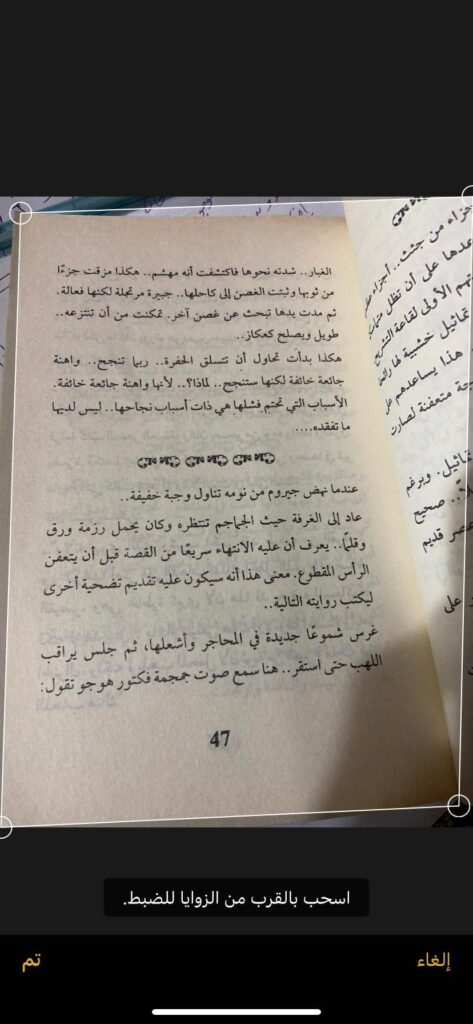 الغبار.. شدته نحوها فاكتشفت أنه مهشم.. هكذا مزقت جزءًا
من ثوبها وثبتت الغصن إلى كاحلها.. جبيرة مرتجلة لكنها فعالة.
ثم مدت يدها تبحث عن غصن آخر. تمكنت من أن تنتزعه..
طويل ويصلح كعكاز..
هكذا بدأت تحاول أن تتسلق الحفرة.. ربما تنجح.. واهنة
جائعة خائفة لكنها ستنجح.. لماذا؟.. لأنها واهنة جائعة خائفة.
الأسباب التي تحتم فشلها هي ذات أسباب نجاحها.. ليس لديها
ما تفقده....
عندما نهض جيروم من نومه تناول وجبة خفيفة..
عاد إلى الغرفة حيث الجماجم تنتظره وكان يحمل رزمة ورق
وقلمًا.. يعرف أن عليه الانتهاء سريعًا من القصة قبل أن يتعفن
الرأس المقطوع. معنى هذا أنه سيكون عليه تقديم تضحية أخرى
ليكتب روايته التالية..
غرس شموعًا جديدة في المحاجر وأشعلها، ثم جلس يراقب
اللهب حتى استقر.. هنا سمع صوت جمجمة فكتور هوجو تقول:
47
جزاء من جثث.. أجزاء
عدها على أن تظل
نهم الأولى لقاعة التشريح
تماثيل خشبية لها
هذا يساعدهم على
حة متعفنة لصارت
تماثيل. وبرغم
لاً.. صحيح
عصر قديم
على
اسحب بالقرب من الزوايا للضبط.
إلغاء
تم